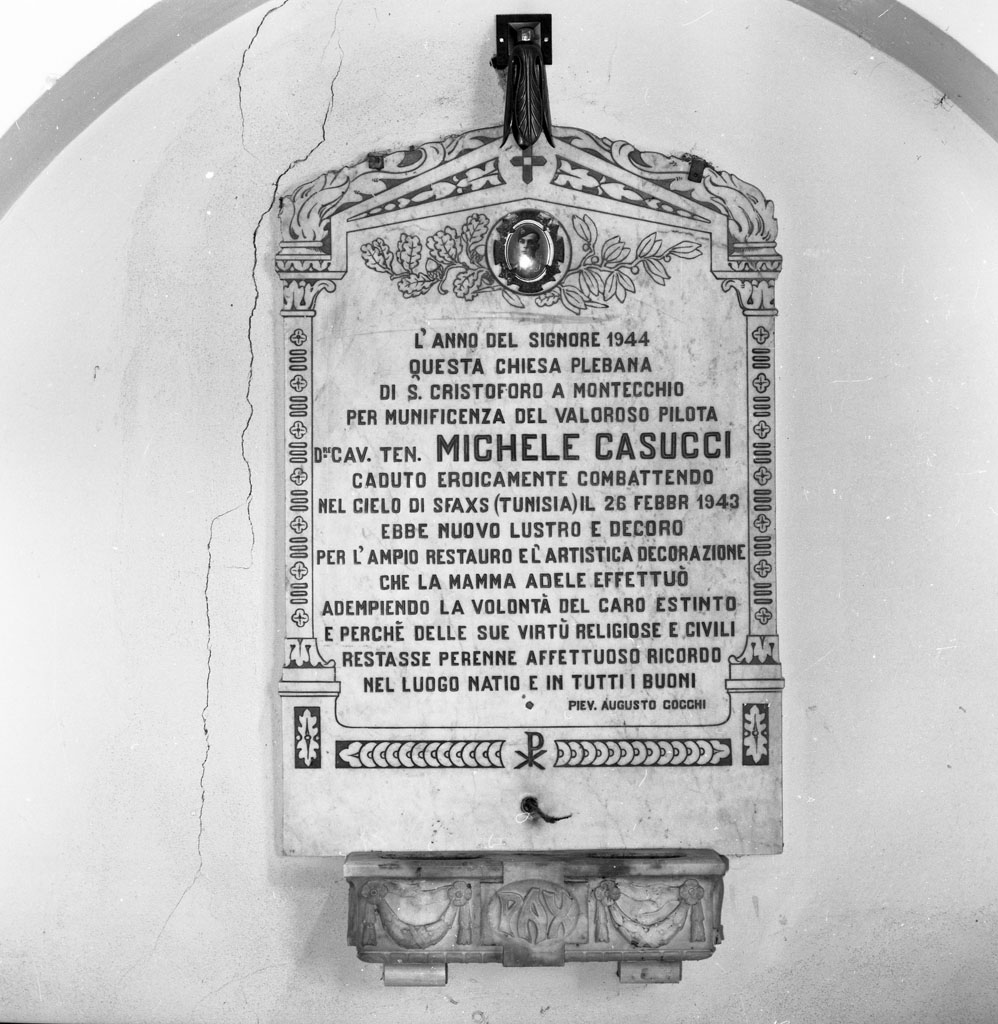 L'ANNO DEL SIGNORE 1944
QUESTA CHIESA PLEBANA
DI S. CRISTOFORO A MONTECCHIO
PER MUNIFICENZA DEL VALOROSO PILOTA
D.RE CAV. TEN. MICHELE CASUCCI
CADUTO EROICAMENTE COMBATTENDO
NEL CIELO DI SFAXS (TUNISIA) IL 26 FEBBR 1943
EBBE NUOVO LUSTRO E DECORO
PER L'AMPIO RESTAURO E L'ARTISTICA DECORAZIONE
CHE LA MAMMA ADELE EFFETTUÒ
ADEMPIENDO LA VOLONTÀ DEL CARO ESTINTO
E PERCHÈ DELLE SUE VIRTÙ RELIGIOSE E CIVILI
RESTASSE PERENNE AFFETTUOSO RICORDO
NEL LUOGO NATIO E IN TUTTI I BUONI
PIEV. AUGUSTO COCCHI
PAX